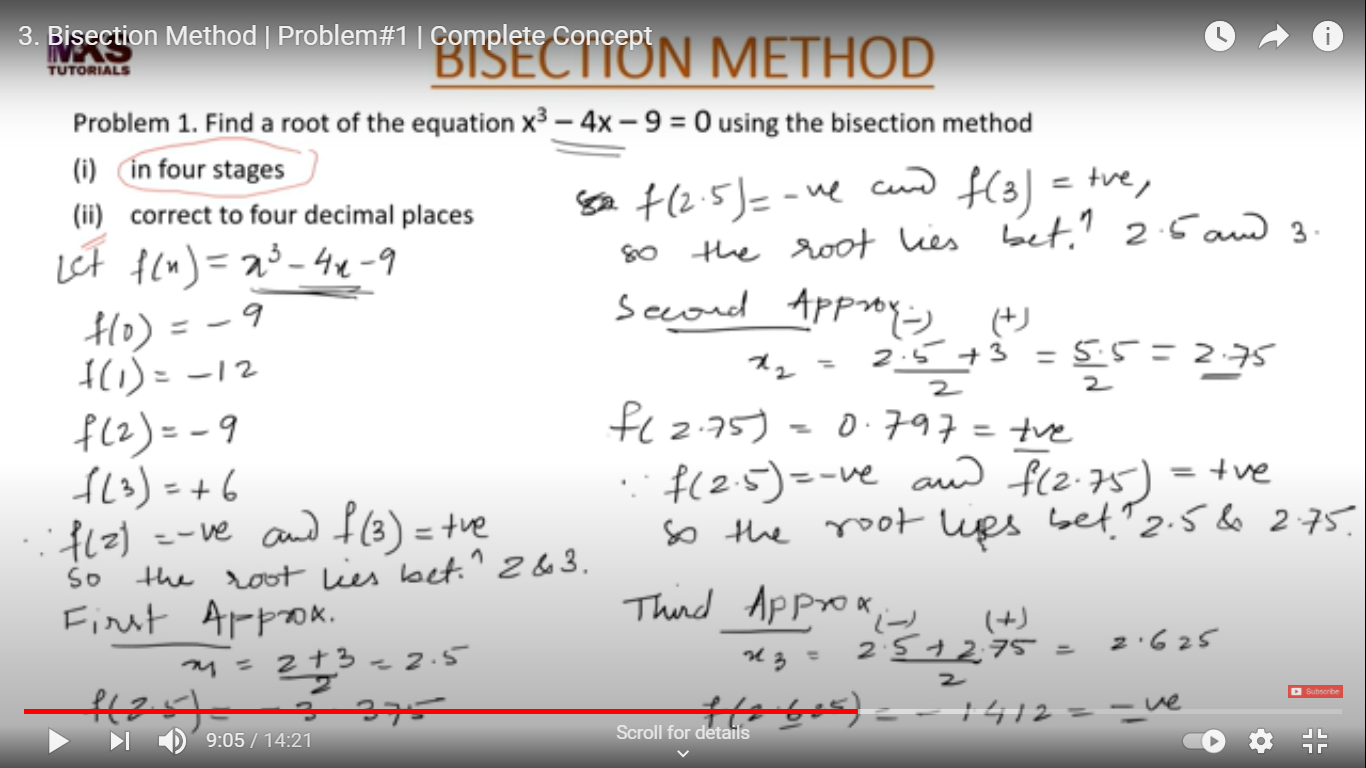 3. Bisection Method | Problem#1 | Complete Concept
MKS
TUTORIALS
BISECTION METHOD
Problem 1. Find a root of the equation x³ – 4x – 9 = 0 using the bisection method
(i) in four stages
(ii) correct to four decimal places
Let f(x) = x³ - 4x - 9
f(0) = - 9
f(1) = -12
f(2) = - 9
f(3) = + 6
∵ f(2) = -ve and f(3) = +ve
so the root lies bet.ⁿ 2 & 3.
First Approx.
x₁ = 2 + 3 / 2 = 2.5
f(2.5) = - 3.375
f(2.5) = -ve and f(3) = +ve,
so the root lies bet.ⁿ 2.5 and 3.
Second Approx.
(-) (+)
x₂ = 2.5 + 3 / 2 = 5.5 / 2 = 2.75
f(2.75) = 0.797 = +ve
∵ f(2.5) = -ve and f(2.75) = +ve
so the root lies bet.ⁿ 2.5 & 2.75.
Third Approx
(-) (+)
x₃ = 2.5 + 2.75 / 2 = 2.625
f(2.625) = - 1412 = -ve
Subscribe
9:05 / 14:21
Scroll for details